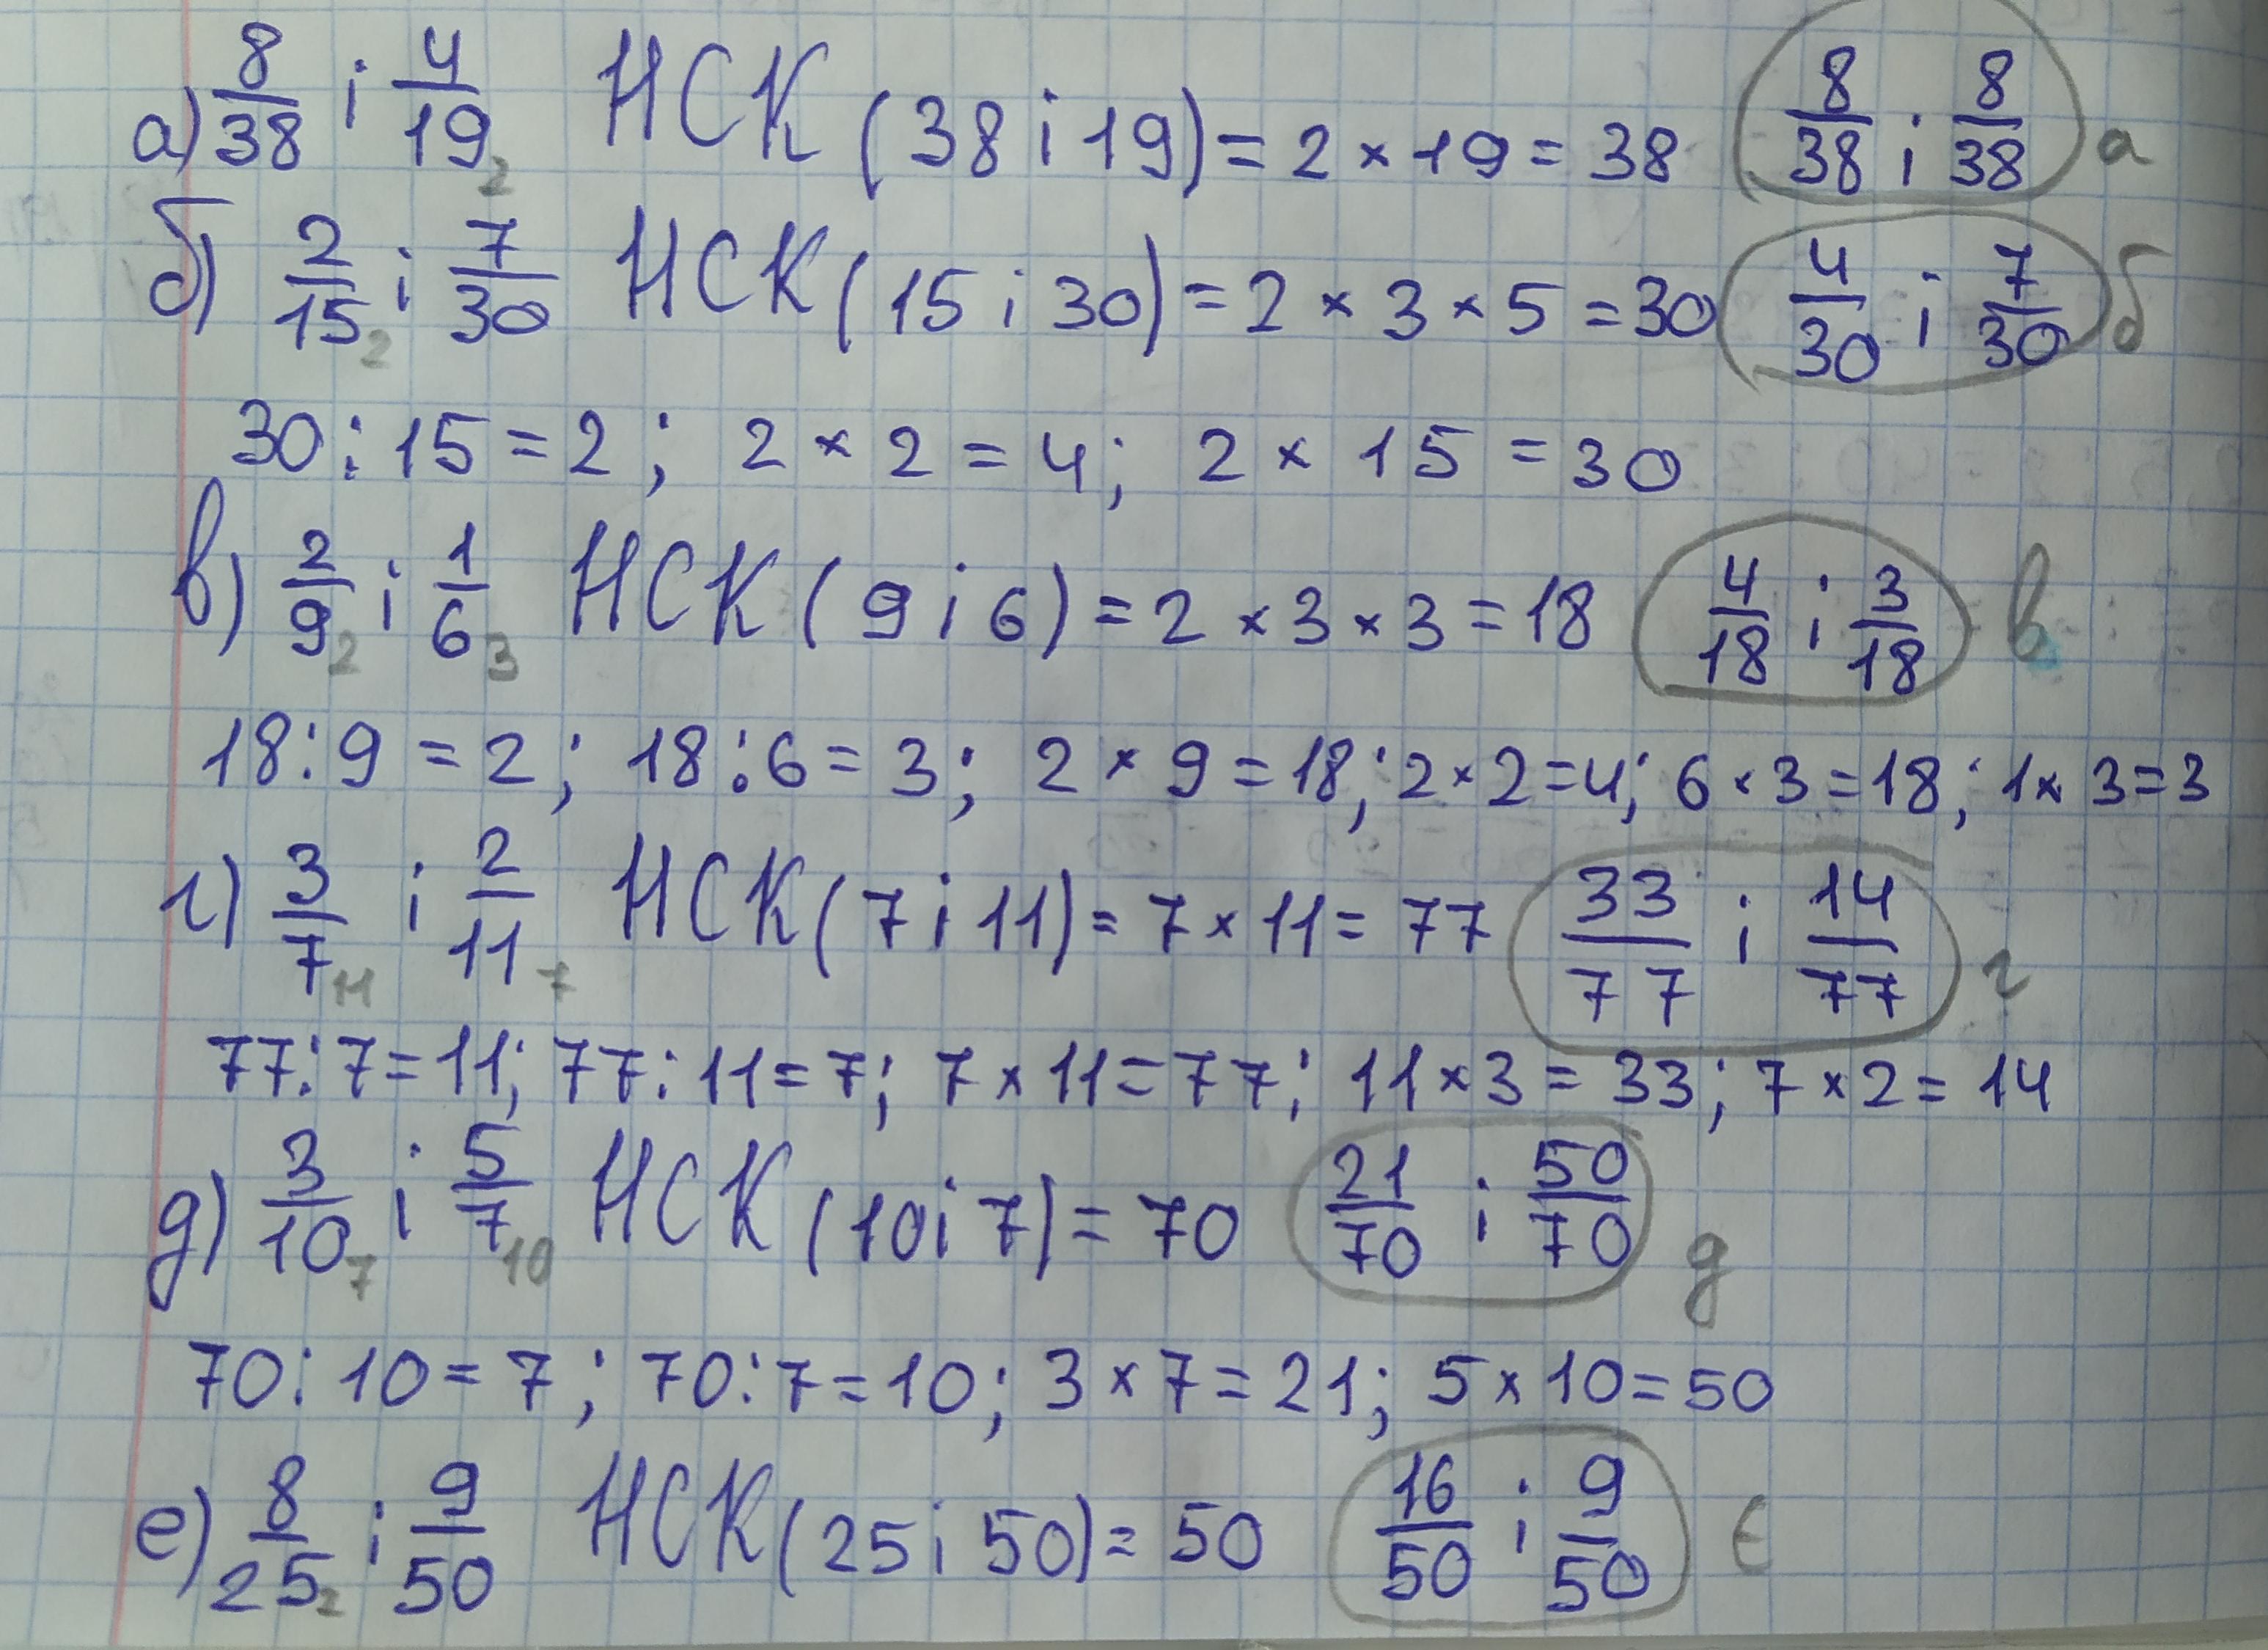 а) 8/38 і 4/19 2 НСК (38 і 19) = 2 × 19 = 38 8/38 і 8/38 а
б) 2/15 2 і 7/30 НСК (15 і 30) = 2 × 3 × 5 = 30 4/30 і 7/30 б
30 : 15 = 2 ; 2 × 2 = 4; 2 × 15 = 30
в) 2/9 2 і 1/6 3 НСК (9 і 6) = 2 × 3 × 3 = 18 4/18 і 3/18 в
18 : 9 = 2 ; 18 : 6 = 3 ; 2 × 9 = 18 ; 2 × 2 = 4; 6 × 3 = 18 ; 1 × 3 = 3
г) 3/7 11 і 2/11 7 НСК (7 і 11) = 7 × 11 = 77 33/77 і 14/77 г
77 : 7 = 11; 77 : 11 = 7; 7 × 11 = 77; 11 × 3 = 33 ; 7 × 2 = 14
д) 3/10 7 і 5/7 10 НСК (10 і 7) = 70 21/70 і 50/70 д
70 : 10 = 7 ; 70 : 7 = 10 ; 3 × 7 = 21; 5 × 10 = 50
е) 8/25 2 і 9/50 НСК (25 і 50) = 50 16/50 і 9/50 Є